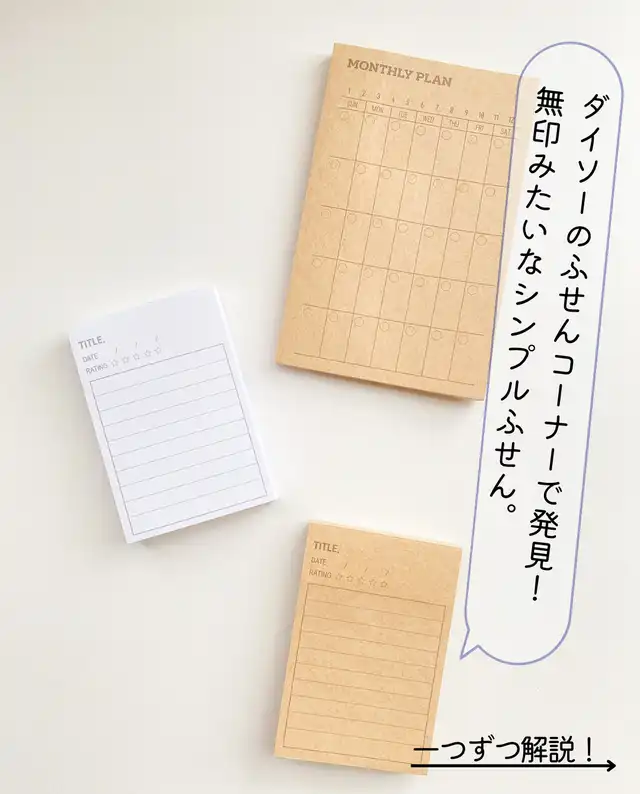 MONTHLY PLAN
1 2 3 4 5 6 7 8 9 10 11 12
SUN. MON. TUE. WED. THU. FRI. SAT.
ダイソーのふせんコーナーで発見！
無印みたいなシンプルふせん。
TITLE.
DATE / / /
RATING ☆☆☆☆☆
TITLE.
DATE / / /
RATING ☆☆☆☆☆
一つずつ解説！